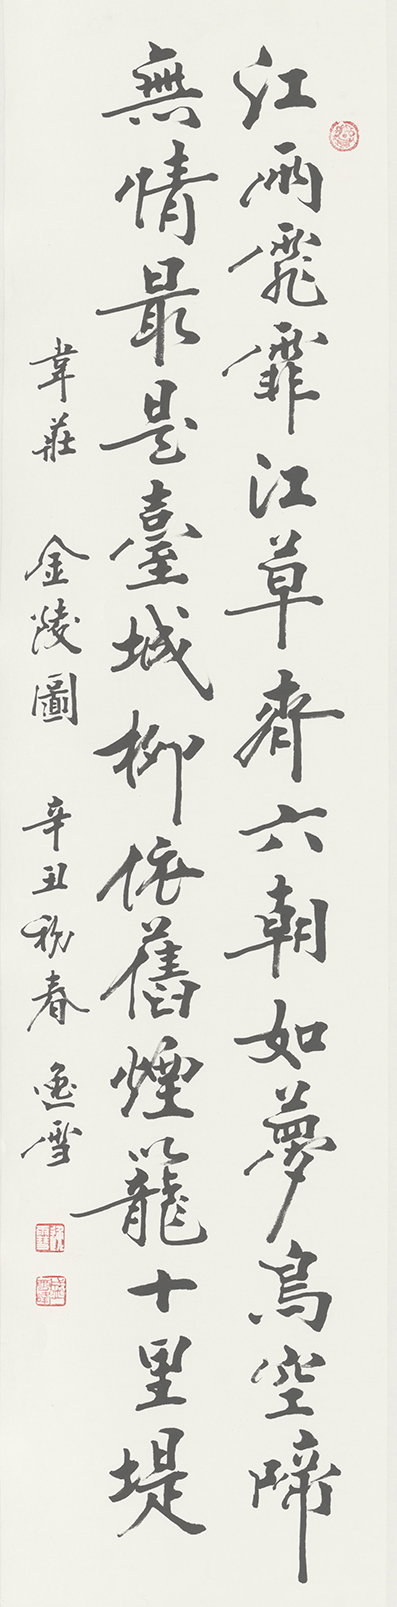 江雨霏霏江草齊六朝如夢鳥空啼
無情最是臺城柳依舊煙籠十里堤
韋莊 金陵圖 辛丑初春 逸雪